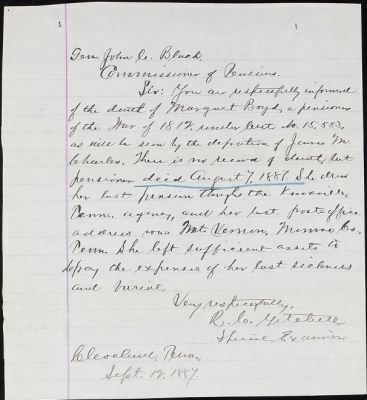 Gen John C. Black,
Commissioner of Pensions.
Sir: You are respectfully informed
of the death of Margaret Boyd, a pensioner
of the War of 1812, under Cert No. 15,583,
as will be seen by the deposition of James M.
Charles. There is no record of death, but
pensioner died August 7, 1886. She drew
her last pension through the Knoxville,
Tenn. agency, and her last post office
address was Mt. Vernon, Monroe Co.
Tenn. She left sufficient assets to
defray the expenses of her last sickness
and burial.
Very respectfully,
R. G.
Special Examiner
Cleveland, Tenn,
Sept. 12, 1887.